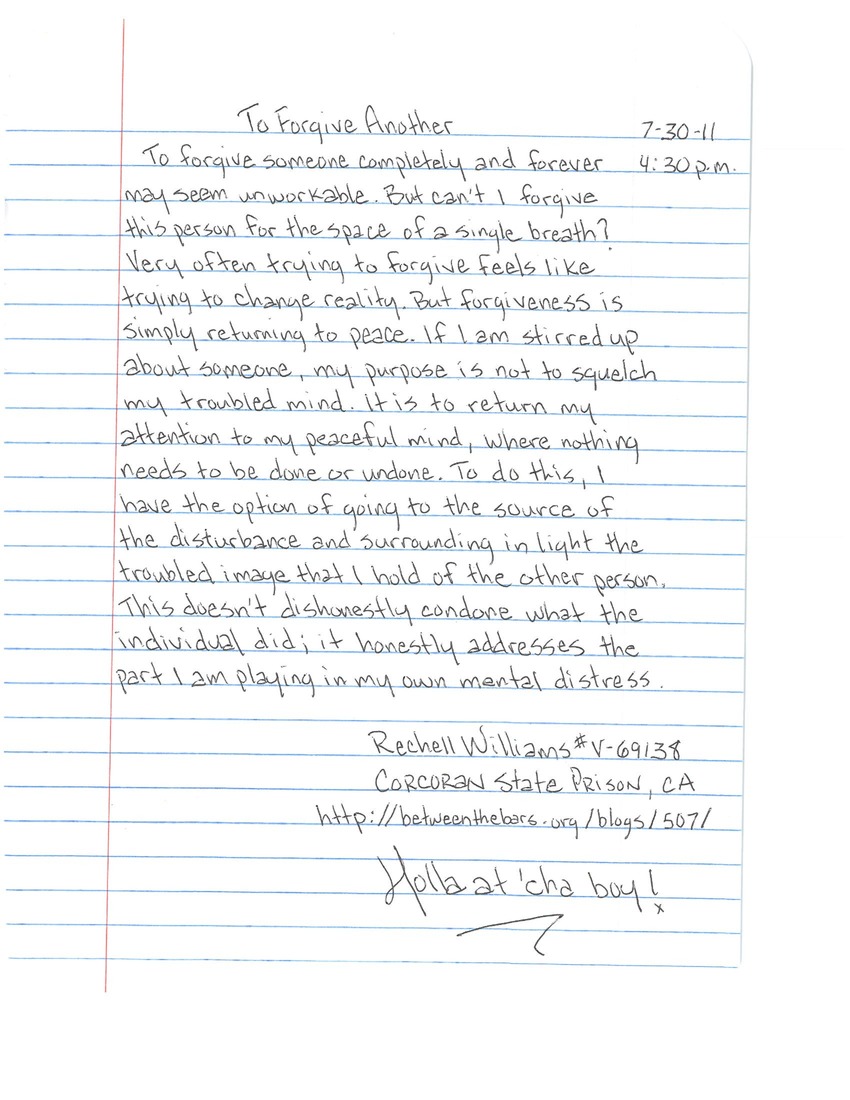 To Forgive Another 7-30-11
To forgive someone completely and forever 4:30 p.m.
may seem unworkable. But can't I forgive
this person for the space of a single breath?
Very often trying to forgive feels like
trying to change reality. But forgiveness is
simply returning to peace. If I am stirred up
about someone, my purpose is not to squelch
my troubled mind. It is to return my
attention to my peaceful mind, where nothing
needs to be done or undone. To do this, I
have the option of going to the source of
the disturbance and surrounding in light the
troubled image that I hold of the other person.
This doesn't dishonestly condone what the
individual did; it honestly addresses the
part I am playing in my own mental distress.
Rechell Williams #V-69138
Corcoran State Prison, CA
http://betweenthebars.org/blogs/507/
Holla at 'cha boy!
x